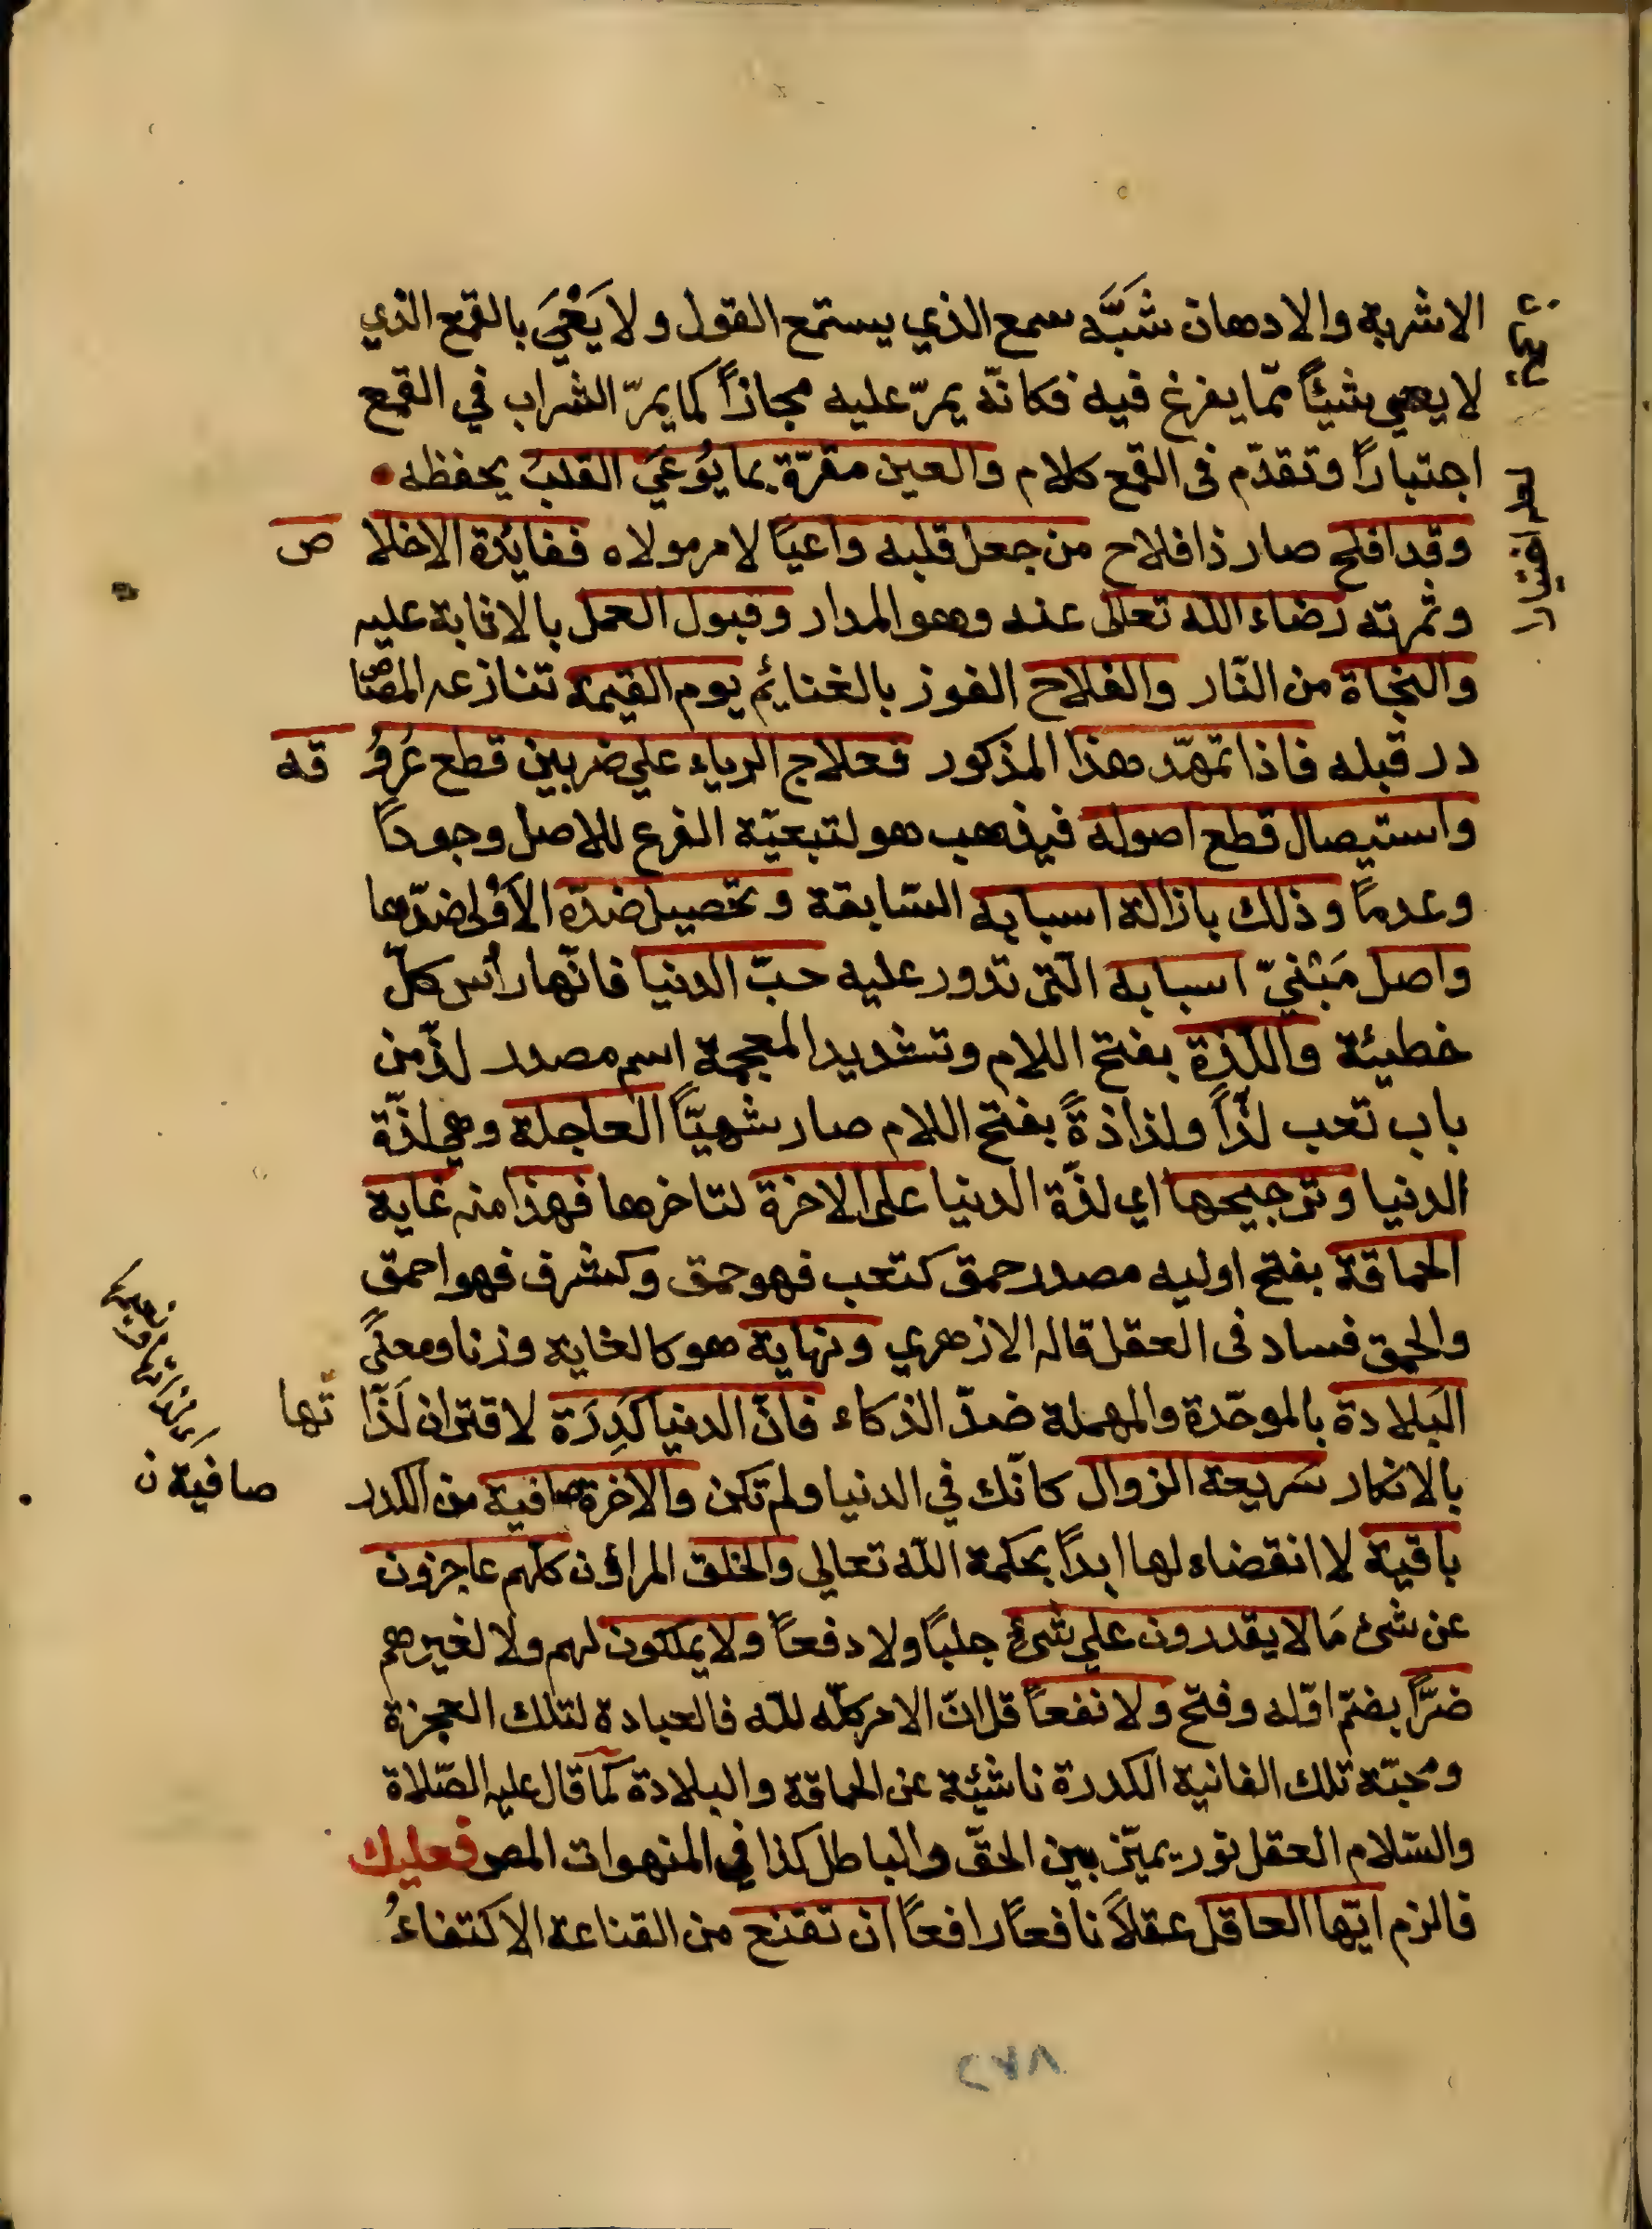 الاشربة والادهان شَبَّه سمع الذي يستمع القول ولا يَعْيَ بالقمع الذي
لا يعي شيئاً ممّا يفرغ فيه فكانّه يمرّ عليه مجازاً كما يمرّ الشراب في القمع
اجتبازاً وتقدّم فى القمع كلام والعين مقرّة بما يُوعَي القلبُ يحفظه
وقد افلح صار ذا فلاح من جعل قلبه واعيًا لامر مولاه ففايُدة الاخلا ص
وثمرته رضاء الله تعالى عنه وهو المدار وقبول العمل بالاثابة عليه
والنجاة من النّار والفلاح الفوز بالغنايُم يوم القيمة تنازعه المصا
در قبله فاذا تمهّد هذا المذكور فعلاج الرياء علي ضربين قطع عُروُ قه
واستيصال قطع اصوله فيذهب هو لتبعيّة الفرع للاصل وجوداً
وعدماً وذلك بازالة اسبابه السّابقة وتحصيل ضدّه الاَوْلى ضدّها
واصل مَبْنيّ اسبابه الّتى تدور عليه حبّ الدنيا فانّها رأس كلّ
خطيئة واللّذة بفتح اللام وتشديد المعجمة اسم مصدر لذّ من
باب تعب لذّاً ولذاذةً بفتح اللام صار شهيّاً العاجلة وهي لذّة
الدنيا وترجيحها اي لذّة الدنيا على الاخرة لتاخرها فهذا منه غاية
الحماقة بفتح اوليه مصدر حمق كتعب فهو حمق وكشرف فهو احمق
والحمق فساد فى العقل قاله الازهري ونهاية هو كالغاية وزنا ومعنًي
البَلادة بالموحّدة والمهملة ضدّ الذكاء فانّ الدنيا كَدِرَة لاقتران لَذّا تّها
بالاكدار سَريعة الزوال كانّك في الدنيا ولم تكن والاخرة صافية من الكدر
صافية ن
باقية لا انقضاء لها ابداً بحكمة الله تعالى والخلق المراؤن كلّهم عاجزون
عن شئ مَا لا يقدرون علي شئ جلبًا ولا دفعاً ولا يملكون لهم ولا لغيرهم
ضرّاً بضمّ اوّله وفتح ولا نفعاً قل انّ الامر كلّه لله فالعبادة لتلك العجزة
ومحبّة تلك الفانية الكدرة ناشئة عن الحماقة والبلادة كما قال عليه الصّلاة
والسّلام العقل نور يميّز بين الحقّ والباطل كذا في المنهوات المص فعليك
فالزم ايّها العاقل عقلاً نافعاً رافعاً ان تقنع من القناعة الاكتفاءُ
٢٧٨